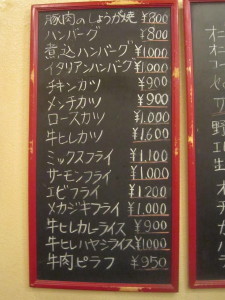 豚肉のしょうが焼 ¥800
ハンバーグ ¥800
煮込ハンバーグ ¥1.000
イタリアンハンバーグ ¥1.000
チキンカツ ¥900
メンチカツ ¥900
ロースカツ ¥1.000
牛ヒレカツ ¥1.600
ミックスフライ ¥1.100
サーモンフライ ¥1.000
エビフライ ¥1200
メカジキフライ ¥1.000
牛ヒレカレーライス ¥900
牛ヒレハヤシライス ¥1000
牛肉ピラフ ¥950